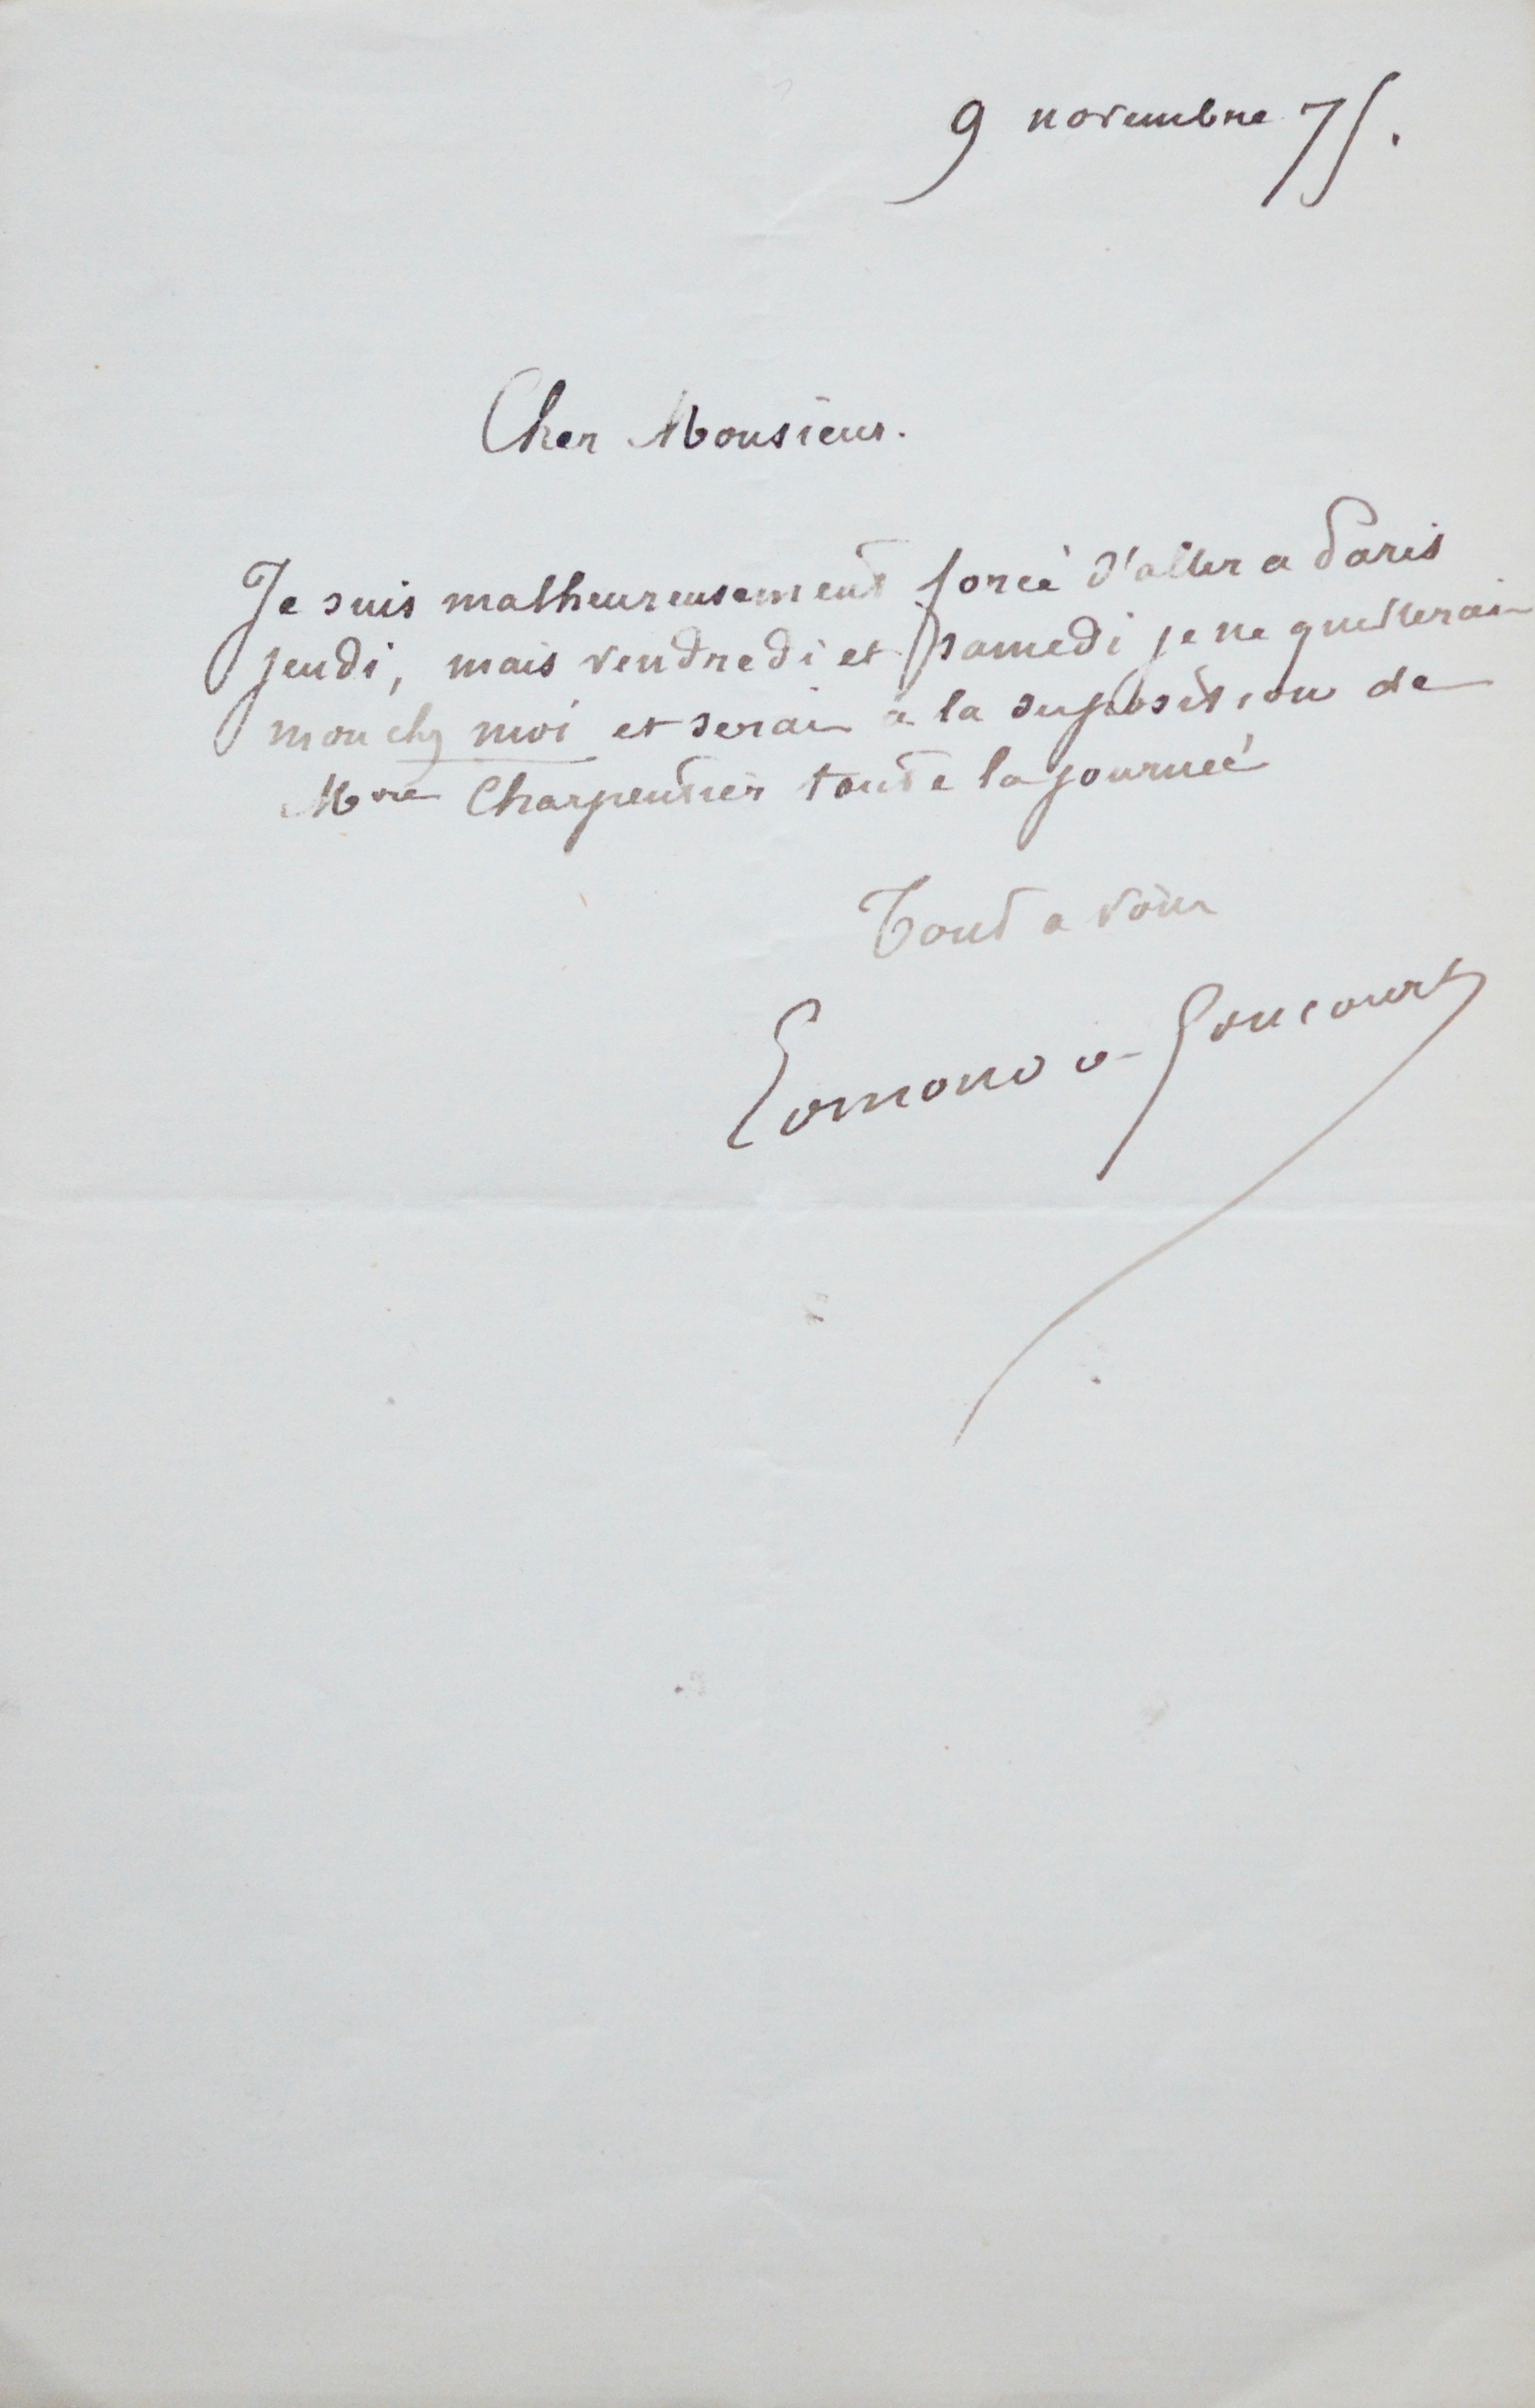 9 novembre 75.
Cher Monsieur.
Je suis malheureusement forcé d'aller a Paris
jeudi, mais vendredi et samedi je ne quitterai
mon chez moi et serai à la disposition de
Mme Charpentier toute la journeé
Tout a vous
Edmond de Goncourt